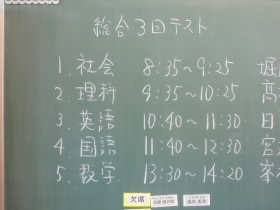 総合3回テスト
1. 社会 8:35〜9:25 堀
2. 理科 9:35〜10:25 高
3. 英語 10:40〜11:30 日
4. 国語 11:40〜12:30 宮
5. 数学 13:30〜14:20 峯
欠席